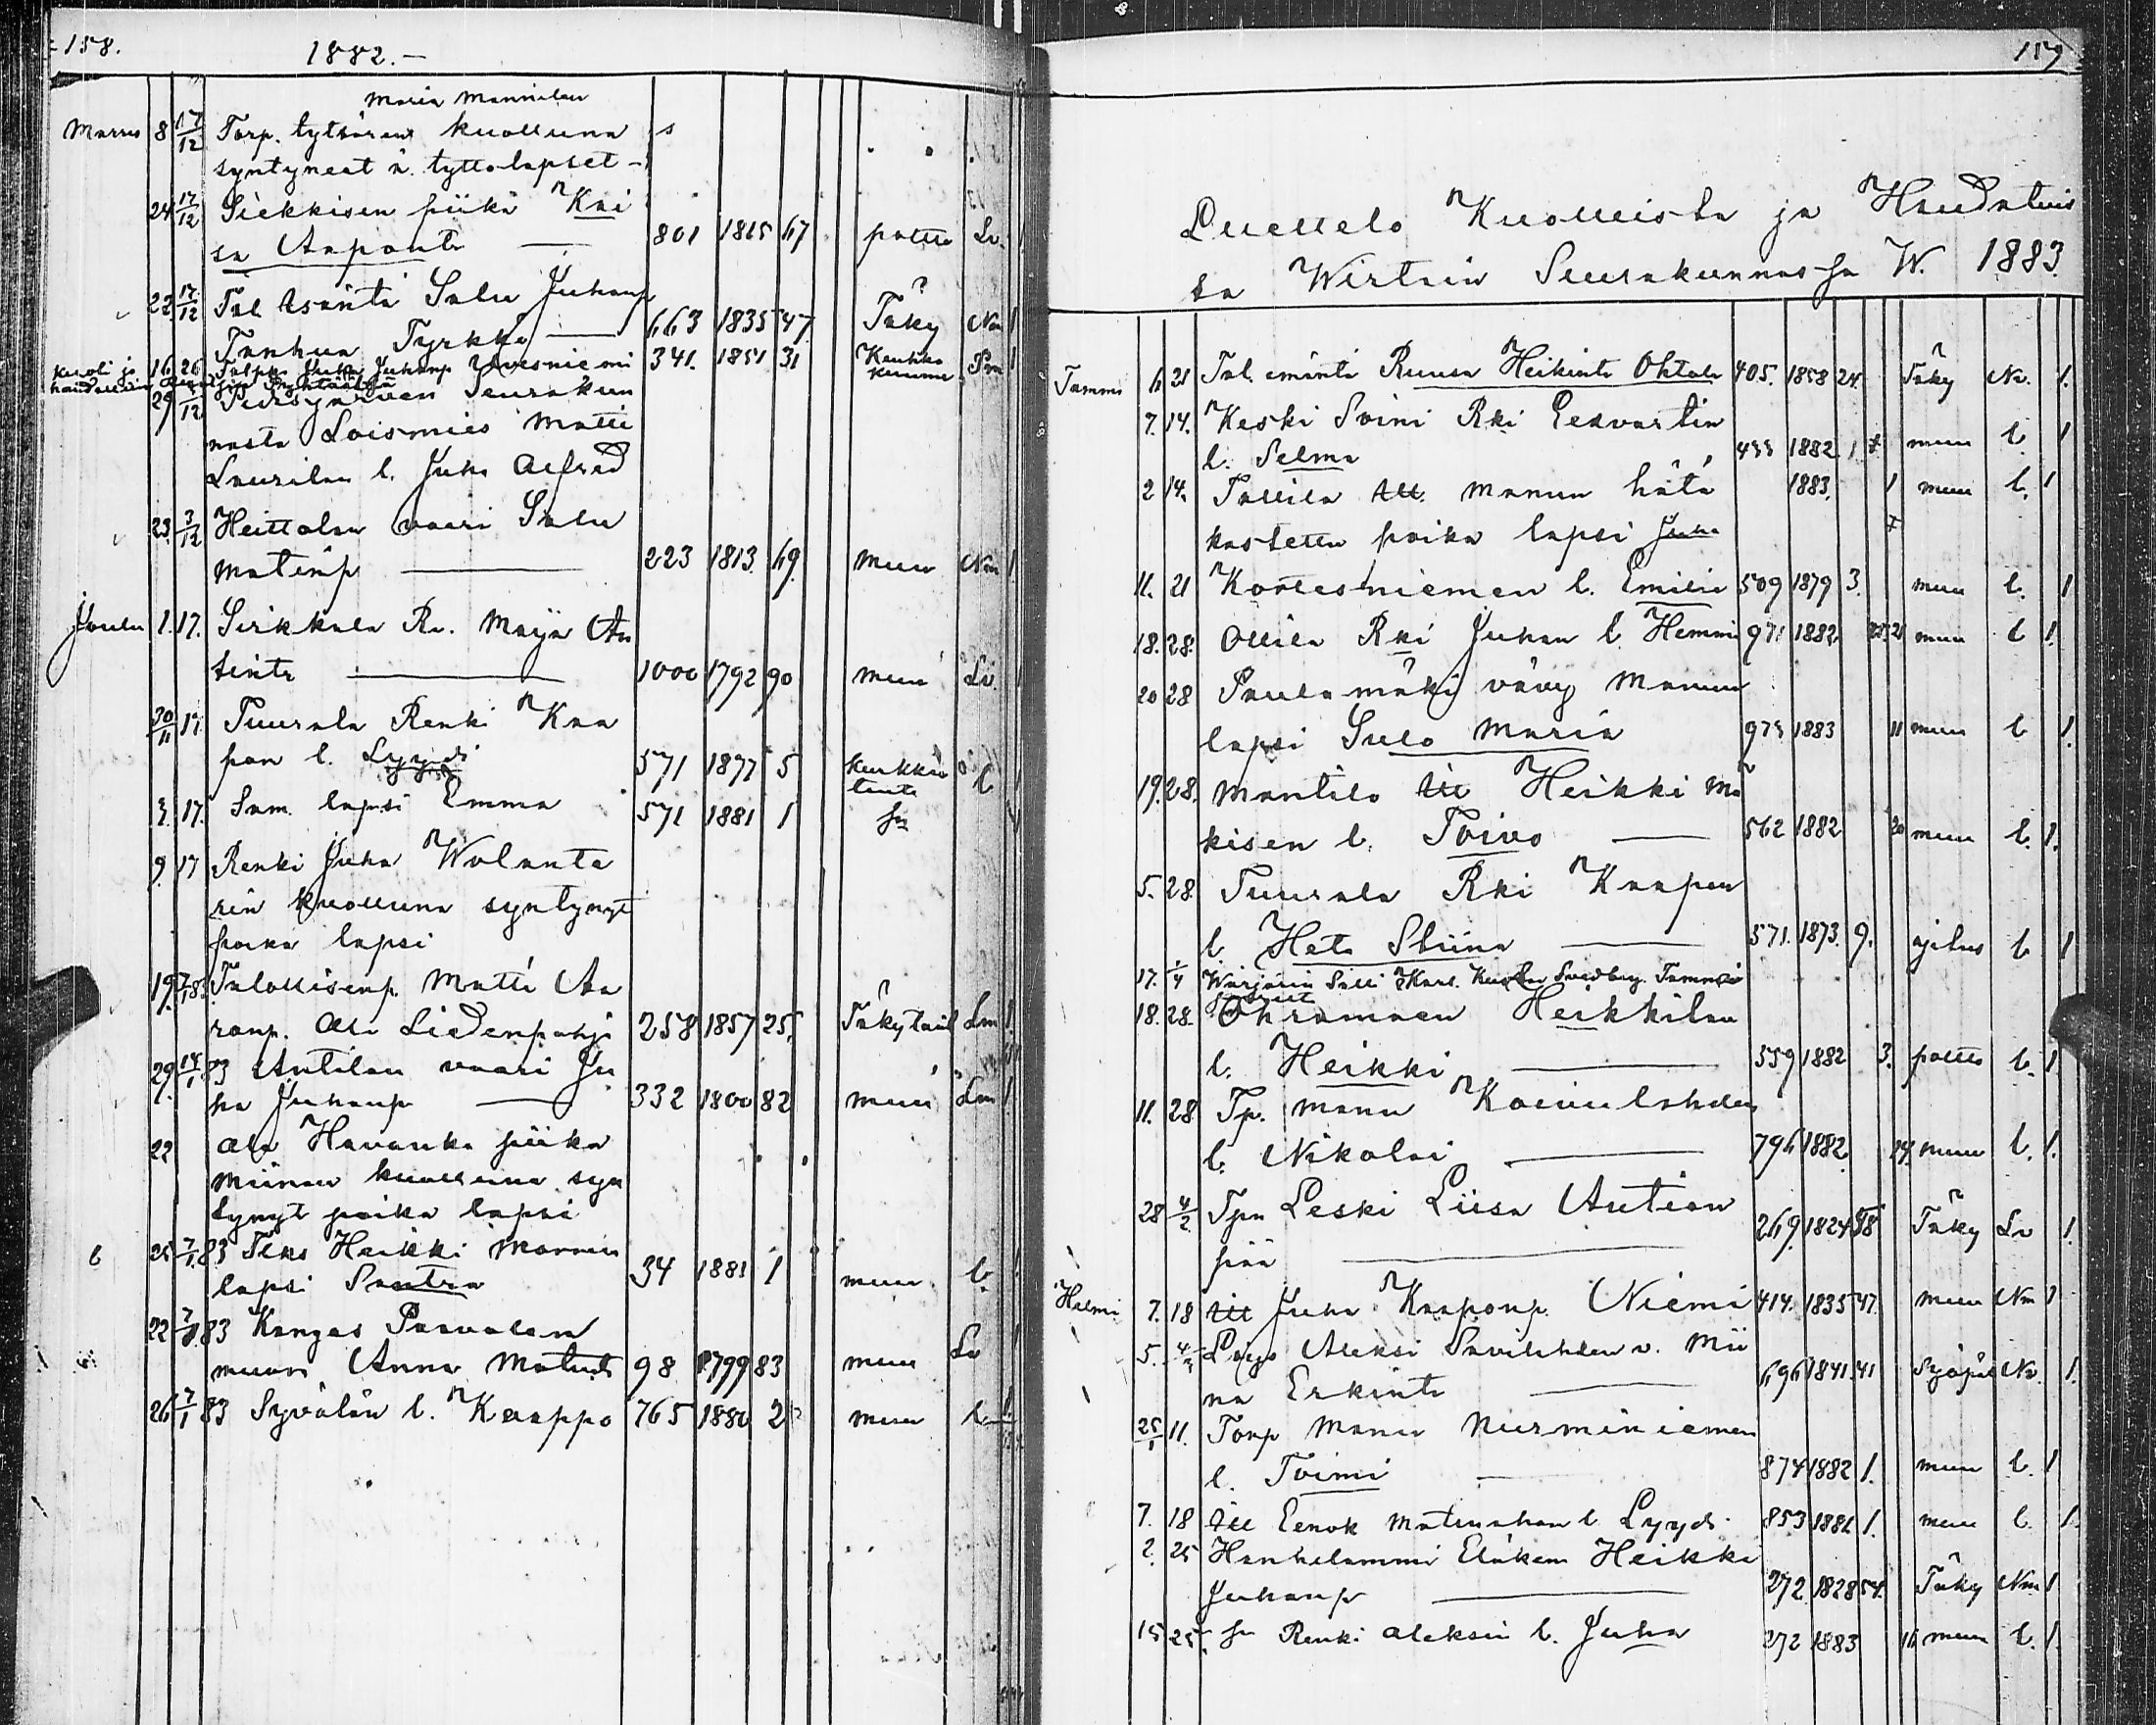 158.
1882.—
Maria Mannilan
Marras 8 17/12 Torp. tyttären kuolluna
syntyneet 2. tyttolapset —
24 17/12 Siekkisen piika Kai
sa Aapontr — 801 1815 67 poltto Lv.
22 17/12 Tal. isäntä Salu Juhanp
Tanhua Tyrkkö — 663 1835 47 Täky Nm 1
16 26 341. 1851 31 Keuhko kuume Pm 1
29 3/12 seurakun
nasta Loismies Matti
Laurilan l. Juha Alfred
23. 3/12 Heittolan vaari Salu
Matinp — 223 1813. 69. muu Nm 1
Joulu 1. 17. Sirkkala Rv. Maija An
tintr — 1000 1792 90 muu Lv. 1
30/11 17. Tuurala Renki Kaa
pon l. Lyydi 571 1877 5 keuhko l. 1
3. 17. Sam. lapsi Emma 571 1881 1 sn
9. 17 Renki Juha Wolanta
rin kuolluna syntynyt
poika lapsi
19. Talollisenp. Matti Aa
ronp. Ala Liedenpohja 258 1857 25. Täkytaut Lm 1.
29. 14/1 83 Antilan vaari Ju
ha Juhanp — 332 1800 82 muu Lm 1.
22 Ala Havanka piika
Miinan kuolluna syn
tynyt poika lapsi
25 7/1 83 Heikki Mannin
lapsi Santra 34 1881 1 muu l.
22 7/1 83 Kangas Paavolan
muori Anna Matintr 98 1799 83 muu Lv 1
26 7/1 83 Syvälän l. Kaappo 765 1880 2 muu l. 1.
159
Luettelo Kuolleista ja Haudatuis
ta Wirtain Seurakunnassa W. 1883.
Tammi 6 21 Tal. emäntä Ruusa Heikintr Ohtola 405. 1858 24. Täky Nv. 1.
7. 14. Keski Soini Rki Eedvartin
l. Selma 455 1882. 1 muu l. 1
2 14. Tallila Itl. Manun hätä 1883. 1 muu l. 1
kastettu poika lapsi Juha
11. 21 Kortesniemen l. Emilia 509 1879 3. muu l. 1
18. 28. Ollila Rki Juhan l. Hemmi 971 1882 21 muu l 1.
20 28 Paulamäki vävy Manun
lapsi Sulo Maria 975 1883 11 muu l 1.
19. 28. Mantila Itl Heikki Mä
kisen l. Toivo — 562 1882 20 muu l. 1.
5. 28. Tuurala Rki Kaapon
l. Heta Stiina — 571. 1873. 9. ajetus l 1
17. 1/4 Wärjärin Sälli Karl. Svedberg Tammi
18. 28. Heikkilän
l. Heikki — 359 1882 3. poltto l. 1
11. 28 Tp. Manu Koivulahden
l. Nikolai — 796 1882. 14. muu l. 1.
28 4/2 Tpn Leski Liisa Aution
pää — 269. 1824 58 Täky Lv 1.
Helmi 7. 18 Itl Juha Kaaponp. Niemi 414. 1835 47. muu Nm 1
5. 4/3 Aleksi Savilahden v. Mii
na Erkintr — 696 1841 41 Syöpä Nv. 1.
25/1 11. Torp Manu Nurminiemen
l. Toimi — 874 1882 1. muu l. 1
7. 18 Itl Eenok l. Lyydi 853 1881 1. muu l. 1.
2. 25 Hanhelammi Eläkem Heikki
Juhanp — 272. 1828 54. Täky Nm 1
15 25 sn Renki Aleksin l. Juha 272 1883 16 muu l. 1.